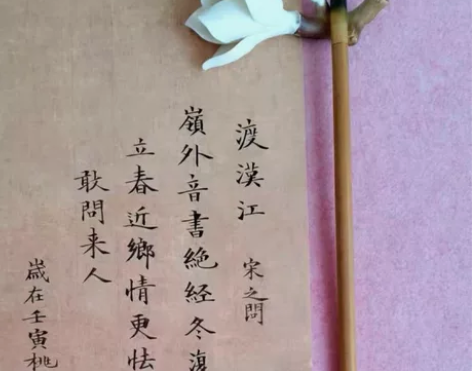 渡漢江 宋之問
嶺外音書絶经冬復
立春近鄉情更怯
敢問来人
歲在壬寅桃